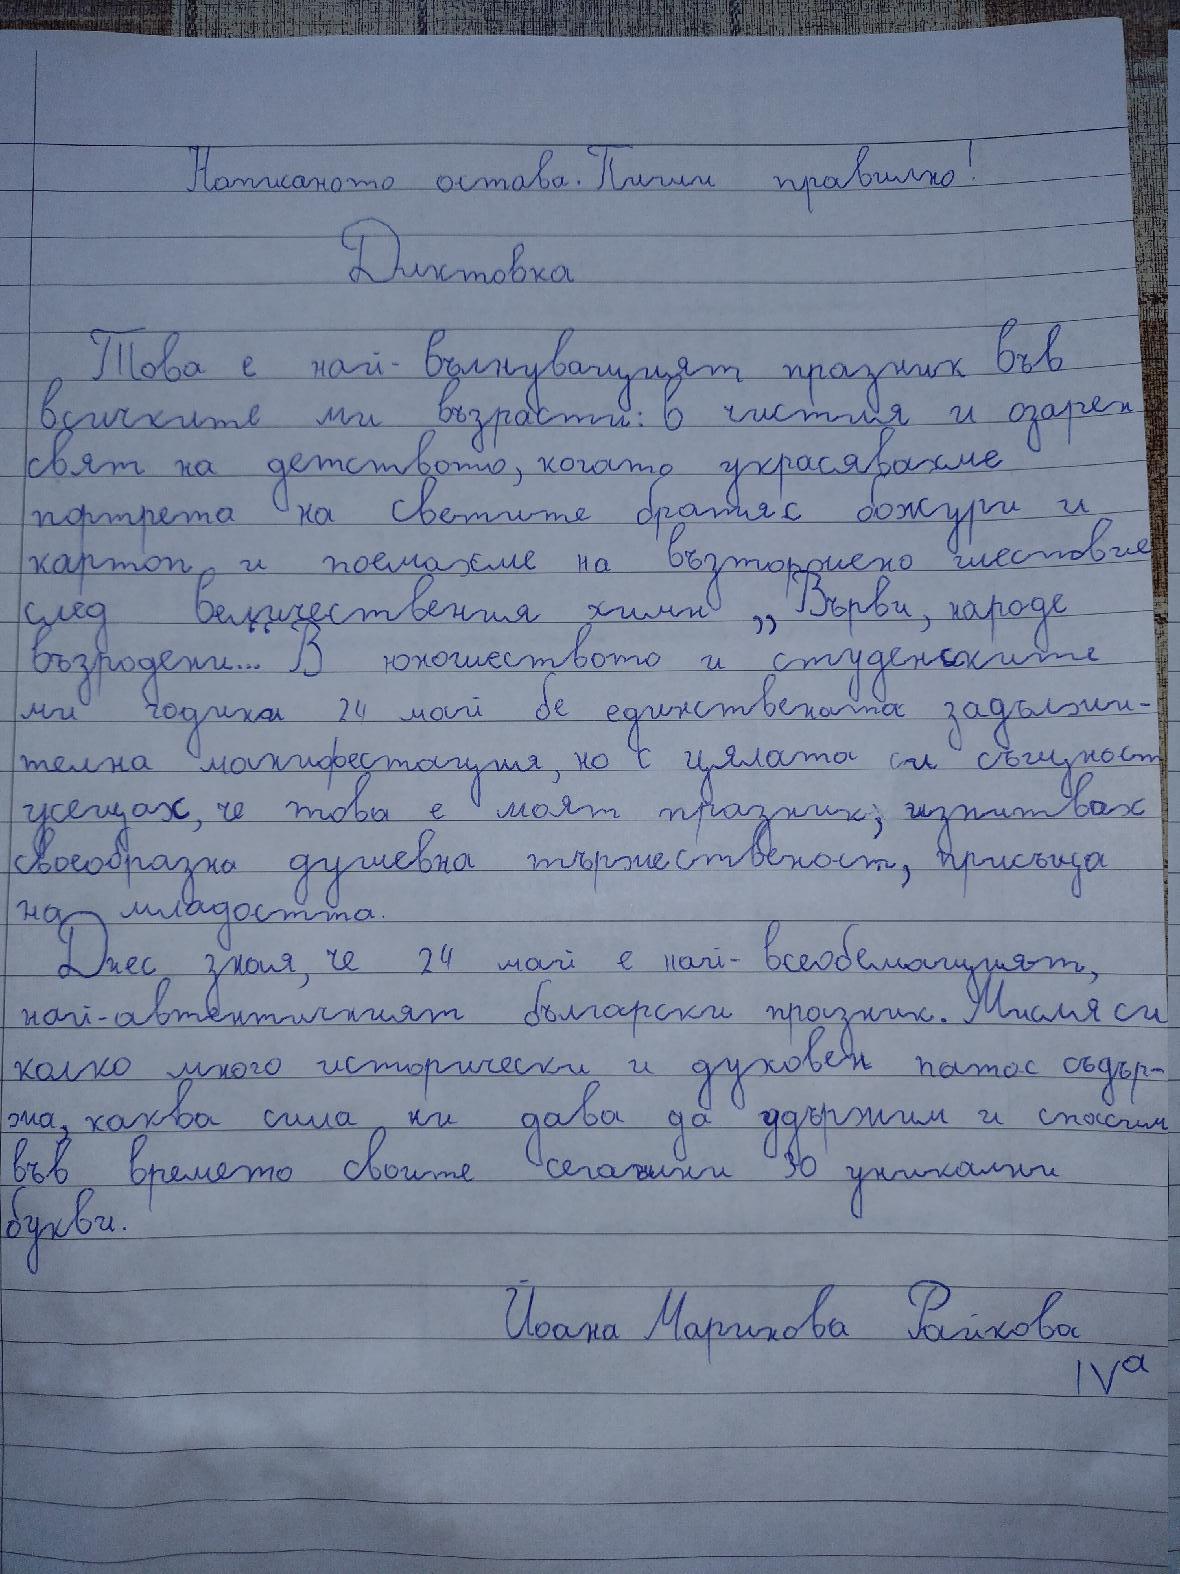 Написаното остава. Пиши правилно!
Диктовка
Това е най-вълнуващият празник във
всичките ми възрасти: в чистия и озарен
свят на детството, когато украсявахме
портрета на светите братя с божури и
картон и поемахме на възторжено шествие
след величествения химн „Върви, народе
възродени... В юношеството и студенските
ми години 24 май бе единствената задължи-
телна манифестация, но с цялата си същност
усещах, че това е моят празник; изпитвах
своеобразна душевна тържественост, присъща
на младостта.
Днес зная, че 24 май е най-всеобемащият,
най-автентичният български празник. Мисля си
колко много исторически и духовен патос съдър-
жа, каква сила ни дава да удържим и спасим
във времето своите сегашни 30 уникални
букви.
Йоана Маринова Райкова
IVа